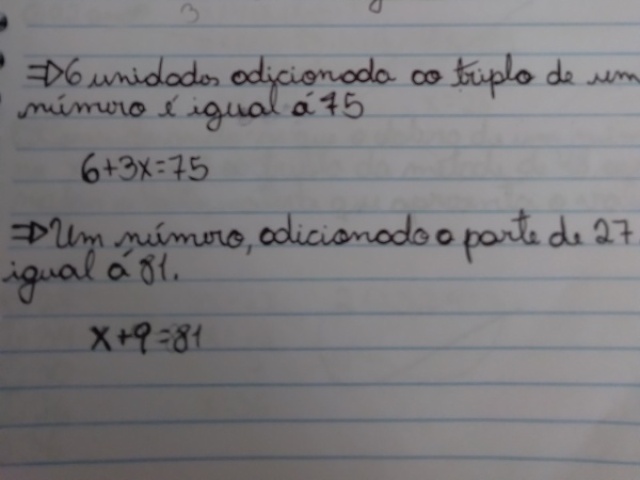 ⇒6 unidades adicionada ao triplo de um
número é igual á 75
6+3x=75
⇒Um número, adicionado a parte de 27
igual á 81.
x+9=81